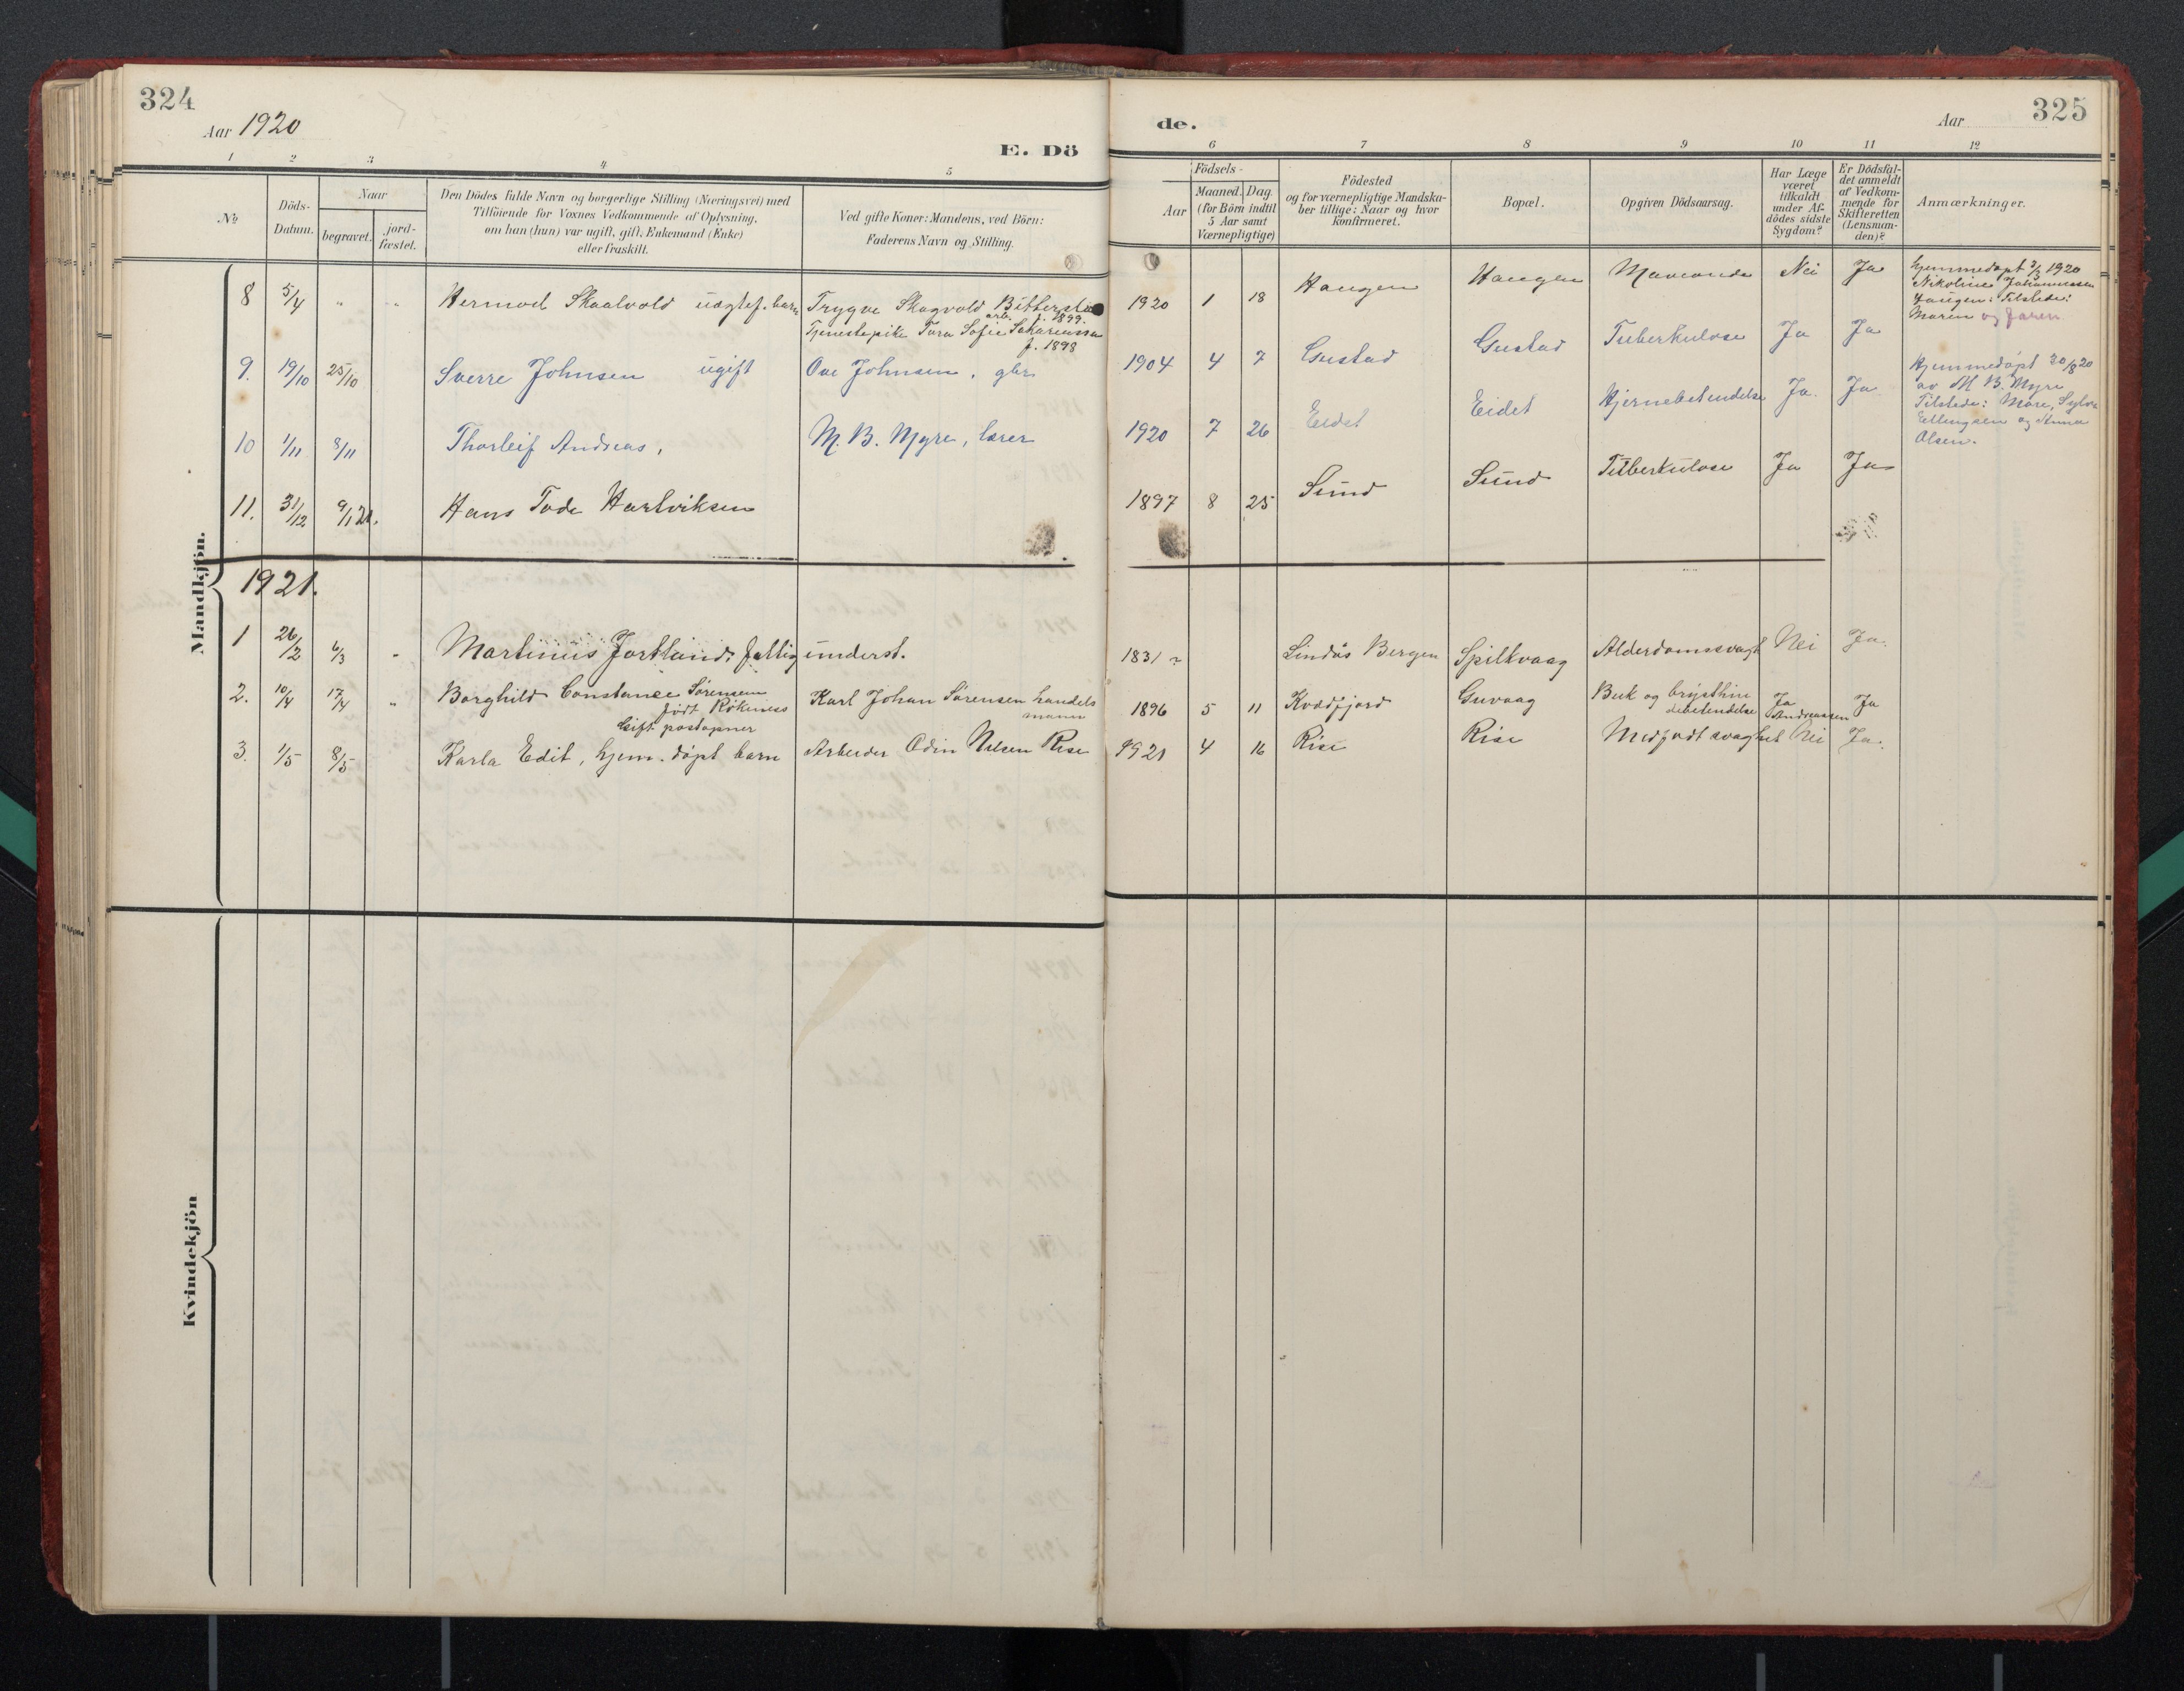 324
Aar 1920
E. Dö
1 2 3 4 5
No
Döds-
Datum.
Naar
begravet.
jord-
fæstet.
Den Dödes fulde Navn og borgerlige Stilling (Næringsvei) med
Tilföiende for Voxnes Vedkommende af Oplysning,
om han (hun) var ugift, gift, Enkemand (Enke)
eller fraskilt.
Ved gifte Koner: Mandens, ved Börn:
Faderens Navn og Stilling.
Mandkjön.
8 5/4 " " Hermod Skaalvold uægtef. barn Trygve Skagvold
arb. f. 1899.
Tjenestepike Tora Sofie
f. 1898
9. 19/10 25/10 Sverre Johnsen ugift Ove Johnsen, gbr.
10 1/11 8/11 Thorleif Andreas, M. B. Myre, lærer
11. 31/12 9/1 21. Hans Tode Hartviksen
1921.
1 26/2 6/3 " Martinus Jortland, fattigunderst.
2. 10/4 17/4 " Borghild Constance Sørensen Karl Johan Sørensen handels
født Røkenes mann
Gift postaapner
3. 1/5 8/5 Karla Edit, hjem. døpt barn Arbeider Odin Nilsen Rise
Kvindekjön
de.
Aar
325
6 7 8 9 10 11 12
Födsels-
Aar
Maaned. Dag.
(for Börn indtil
5 Aar samt
Værnepligtige)
Födested
og for værnepligtige Mandska-
ber tillige: Naar og hvor
konfirmeret.
Bopæl.
Opgiven Dödsaarsag.
Har Læge
været
tilkaldt
under Af-
dödes sidste
Sygdom?
Er Dödsfal-
det anmeldt
af Vedkom-
mende for
Skifteretten
(Lensman-
den)?
Anmærkninger.
1920 1 18 Haugen Haugen Nei Ja
Hjemmedøpt 3/3 1920
Nikoline Johannessen
Haugen: Tilstede:
Moren og faren
1904 4 7 Gustad Gustad Tuberkulose Ja Ja
1920 7 26 Eidet Eidet Hjernebetendelse Ja. Ja
Hjemmedøpt 30/8 20
av M. B. Myre
Tilstede: More, Sylvi
Ellingsen og Anna
Olsen.
1897 8 25 Sund Sund Tuberkulose Ja Ja
1831 ? Lindås Bergen Spilkvaag Alderdomssvagh Nei Ja.
1896 5 11 Kvædfjord Guvaag Buk og brysthin Ja Ja
debetendelse Andreassen
1921 4 16 Rise Rise Medfødt svaghet Nei Ja.